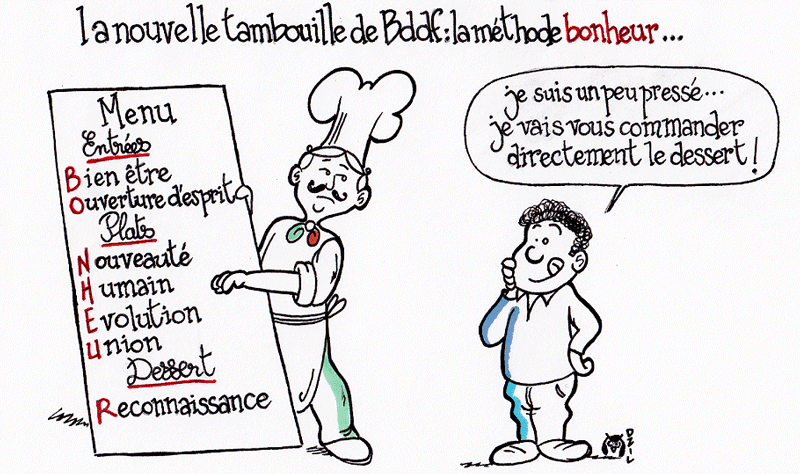 la nouvelle tambouille de Bddf : la méthode bonheur...
Menu
Entrées
Bien être
Ouverture d'esprit
Plats
Nouveauté
Humain
Evolution
Union
Dessert
Reconnaissance
je suis un peu pressé...
je vais vous commander
directement le dessert !